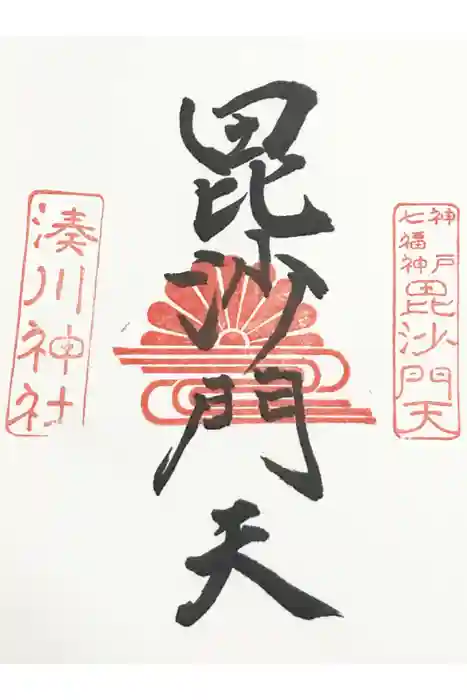 神戸
七福神
毘沙門天
毘沙門天
湊川神社